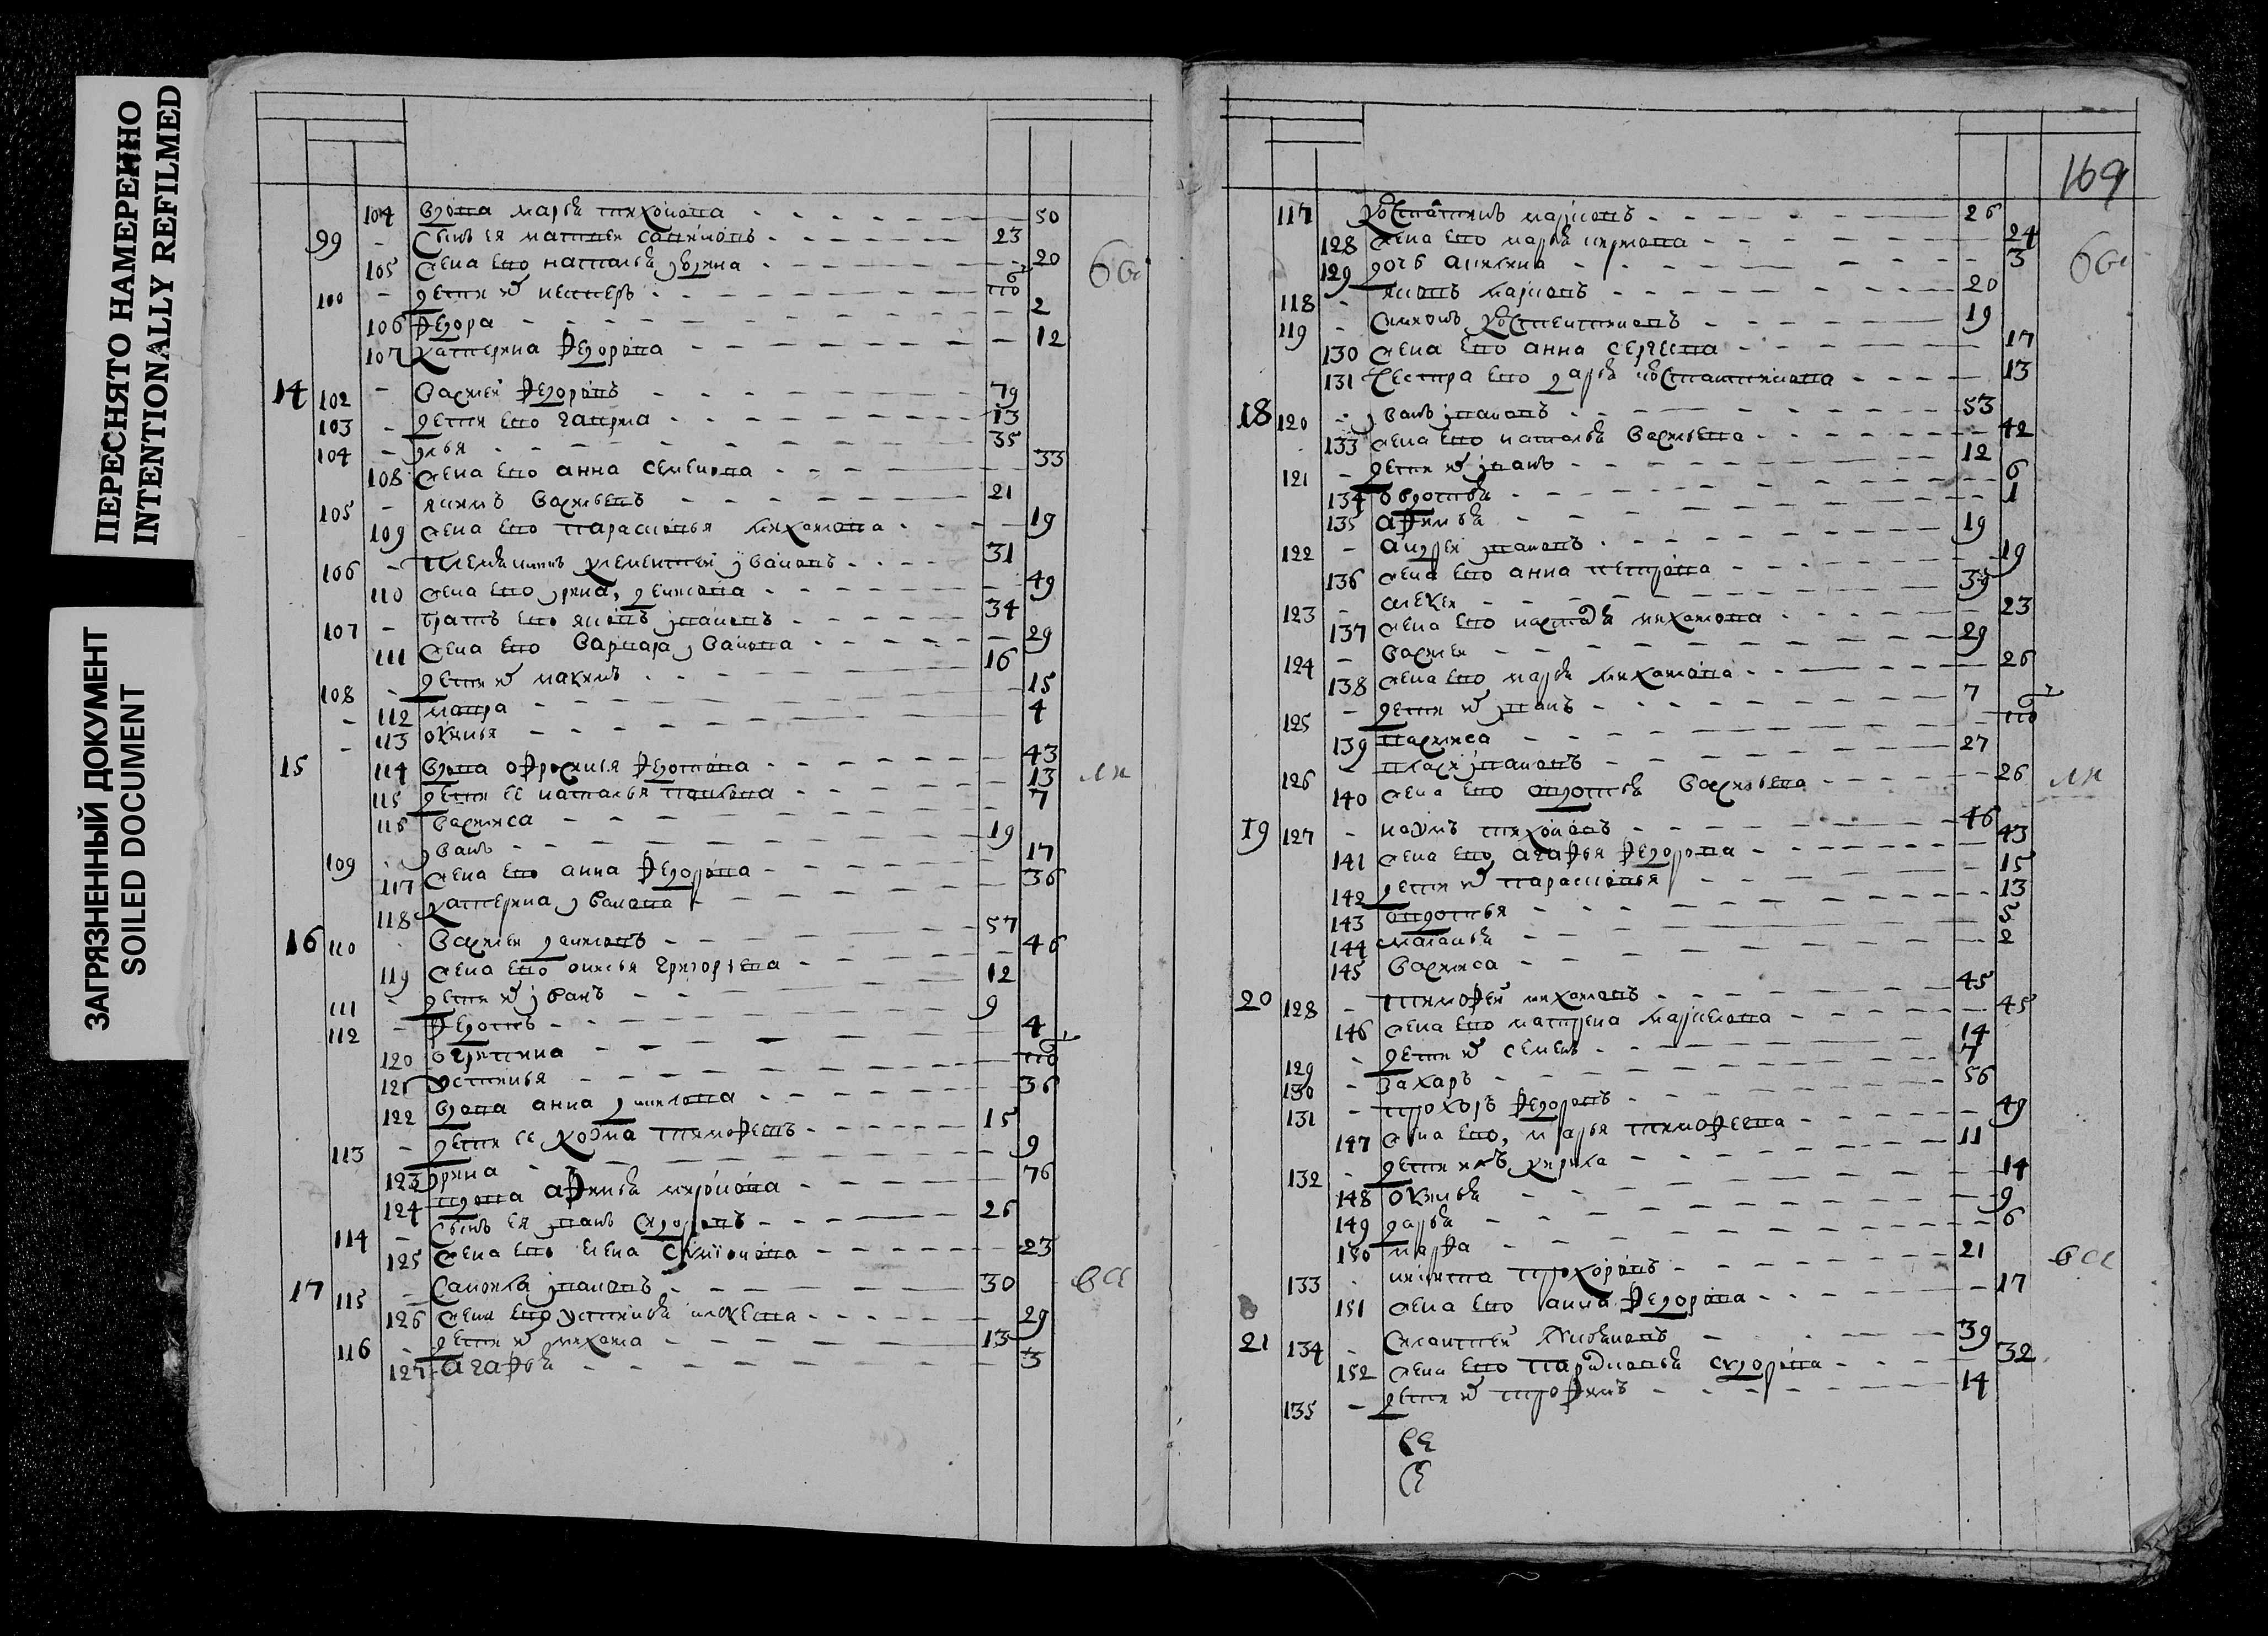 ПЕРЕСНЯТО НАМЕРЕННО
INTENTIONALLY REFILMED
ЗАГРЯЗНЕННЫЙ ДОКУМЕНТ
SOILED DOCUMENT
104 вдова марья тихонова 50
99 - сынъ ея матвеи 23
105 жена ево наталья 20
100 - дети их петръ
106 федора 2
107 катерина федорова 12
14 102 - василей федоровъ 79
103 - дети ево гаврила 13
104 - илья 35
108 жена ево анна семенова 33
105 - якимъ васильевъ 21
109 жена ево парасковья михайлова 19
106 - племянникъ клементей ивановъ 31
110 жена ево ирина денисова 49
107 - братъ ево яковъ ивановъ 34
111 жена ево варвара иванова 29
108 - дети их макимъ 16
- 112 мавра 15
- 113 оксинья 4
15 114 вдова офросинья федотова 43
115 дети ее наталья павлова 13
116 василиса 7
109 иванъ 19
117 жена ево анна федорова 17
118 катерина иванова 36
16 110 василеи даниловъ 57
119 жена ево онисья григорьева 46
111 - дети их иванъ 12
112 - федотъ 9
120 огрепина 4
121 устинья
122 вдова анна 36
113 - дети ее козма тимофеевъ 15
123 ирина 9
124 вдова афимья миронова 76
114 - сынъ ея иванъ сидоровъ 26
125 жена ево елена 23
17 115 - самойла ивановъ 30
126 жена ево устинья 29
116 - дети их михаила 13
127 агафья 3
169
117 26
128 жена ево марья 24
129 дочь акилина 3
118 - яковъ 20
119 - 19
130 жена ево анна сергеева 17
131 сестра ево дарья 13
18 120 - иванъ ивановъ 53
133 жена ево наталья васильева 42
121 - дети их иванъ 12
134 овдотья 6
135 афимья 1
122 - андреи ивановъ 19
136 жена ево анна петрова 19
123 - алексеи 39
137 жена ево настасья михаилова 23
124 - василеи 29
138 жена ево марья михаилова 26
125 - дети их иванъ 7
139 василиса
126 - ивановъ 27
140 жена ево овдотья васильева 26
19 127 - наумъ тихоновъ 46
141 жена ево агафья федорова 43
142 дети их парасковья 15
143 овдотья 13
144 маланья 5
145 василиса 2
20 128 - тимофеи михаиловъ 45
146 жена ево матрена маркелова 45
129 - дети их семенъ 14
130 - захаръ 7
131 - прохоръ федоровъ 56
147 жена ево марья тимофеева 49
132 - дети ихъ кирила 11
148 оксинья 14
149 дарья 9
150 марфа 6
133 - никита прохоровъ 21
151 жена ево анна федорова 17
21 134 - силантеи 39
152 жена ево парасковья сидорова 32
135 - дети их трофимъ 14